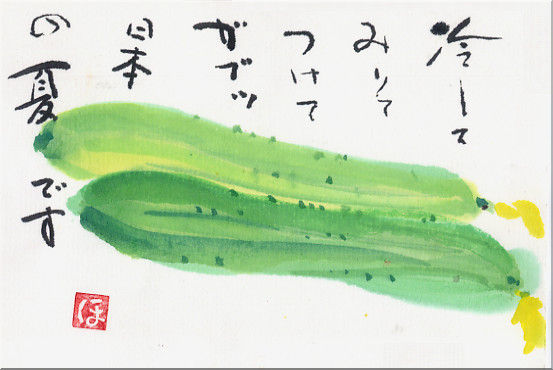 冷して
みそ
つけて
ガブッ
日本
の夏です
ほ